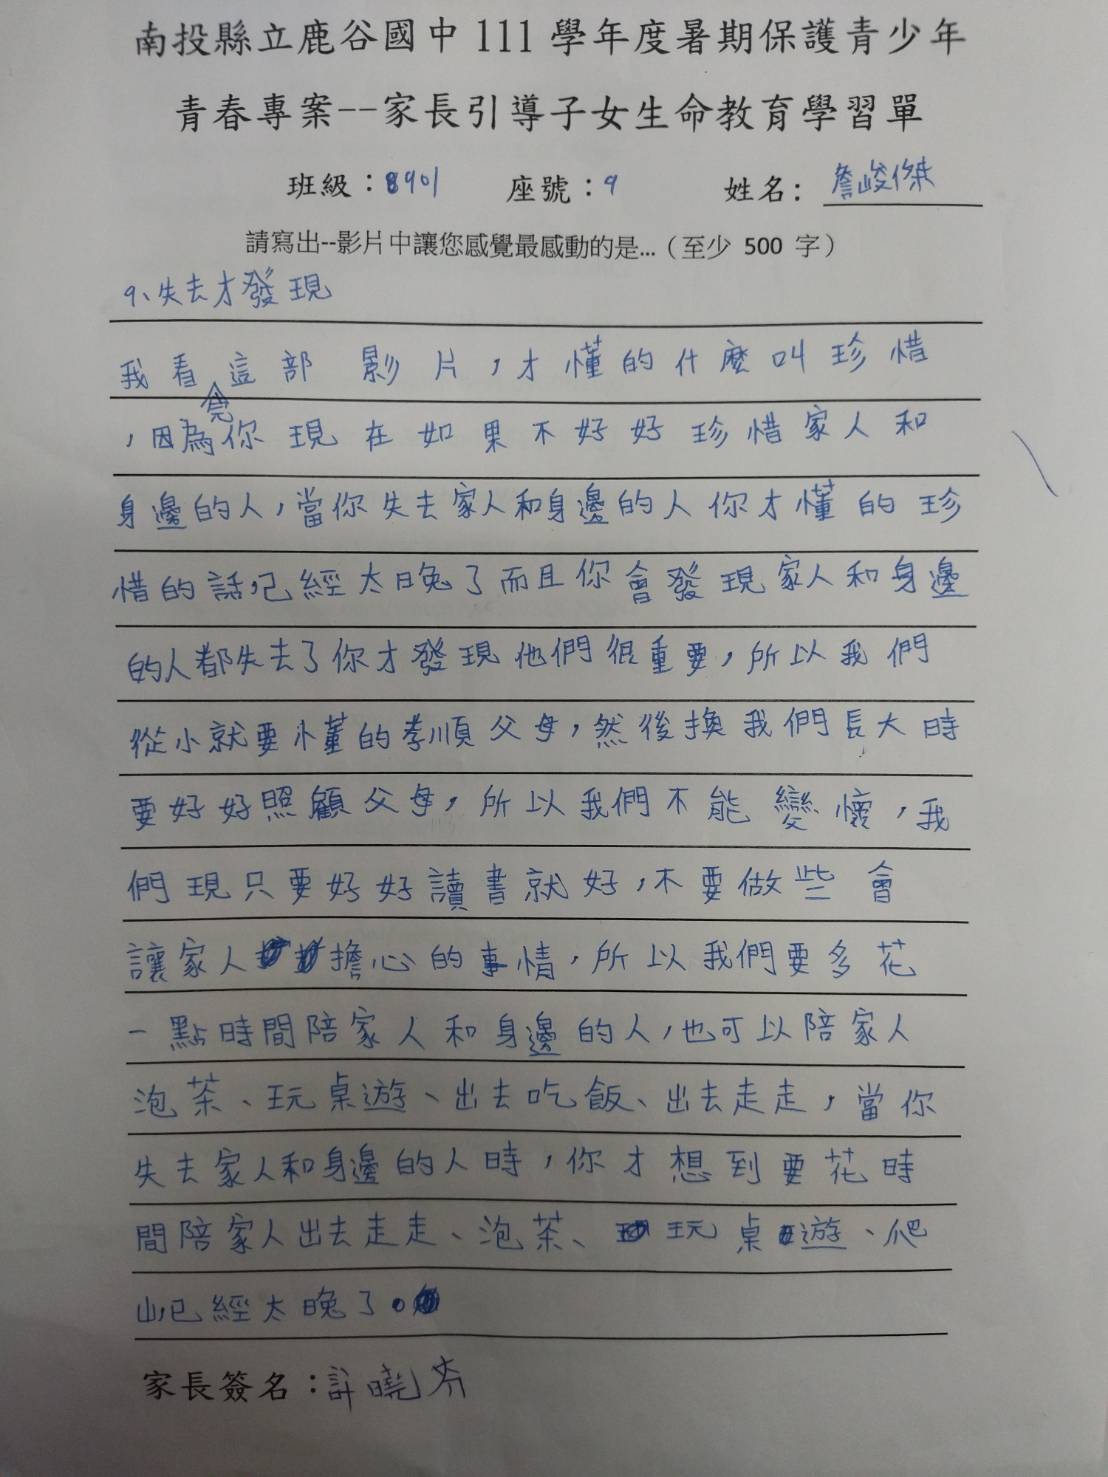 南投縣立鹿谷國中 111 學年度暑期保護青少年
青春專案--家長引導子女生命教育學習單
班級：8901 座號：9 姓名：詹峻傑
請寫出--影片中讓您感覺最感動的是...（至少 500 字）
9、失去才發現
我看完這部影片，才懂的什麼叫珍惜
，因為你現在如果不好好珍惜家人和
身邊的人，當你失去家人和身邊的人你才懂的珍
惜的話，已經太晚了而且你會發現家人和身邊
的人都失去了你才發現他們很重要，所以我們
從小就要懂的孝順父母，然後換我們長大時
要好好照顧父母，所以我們不能變懷，我
們現只要好好讀書就好，不要做些會
讓家人擔心的事情，所以我們要多花
一點時間陪家人和身邊的人，也可以陪家人
泡茶、玩桌遊、出去吃飯、出去走走，當你
失去家人和身邊的人時，你才想到要花時
間陪家人出去走走、泡茶、玩桌遊、爬
山已經太晚了。
家長簽名：許曉